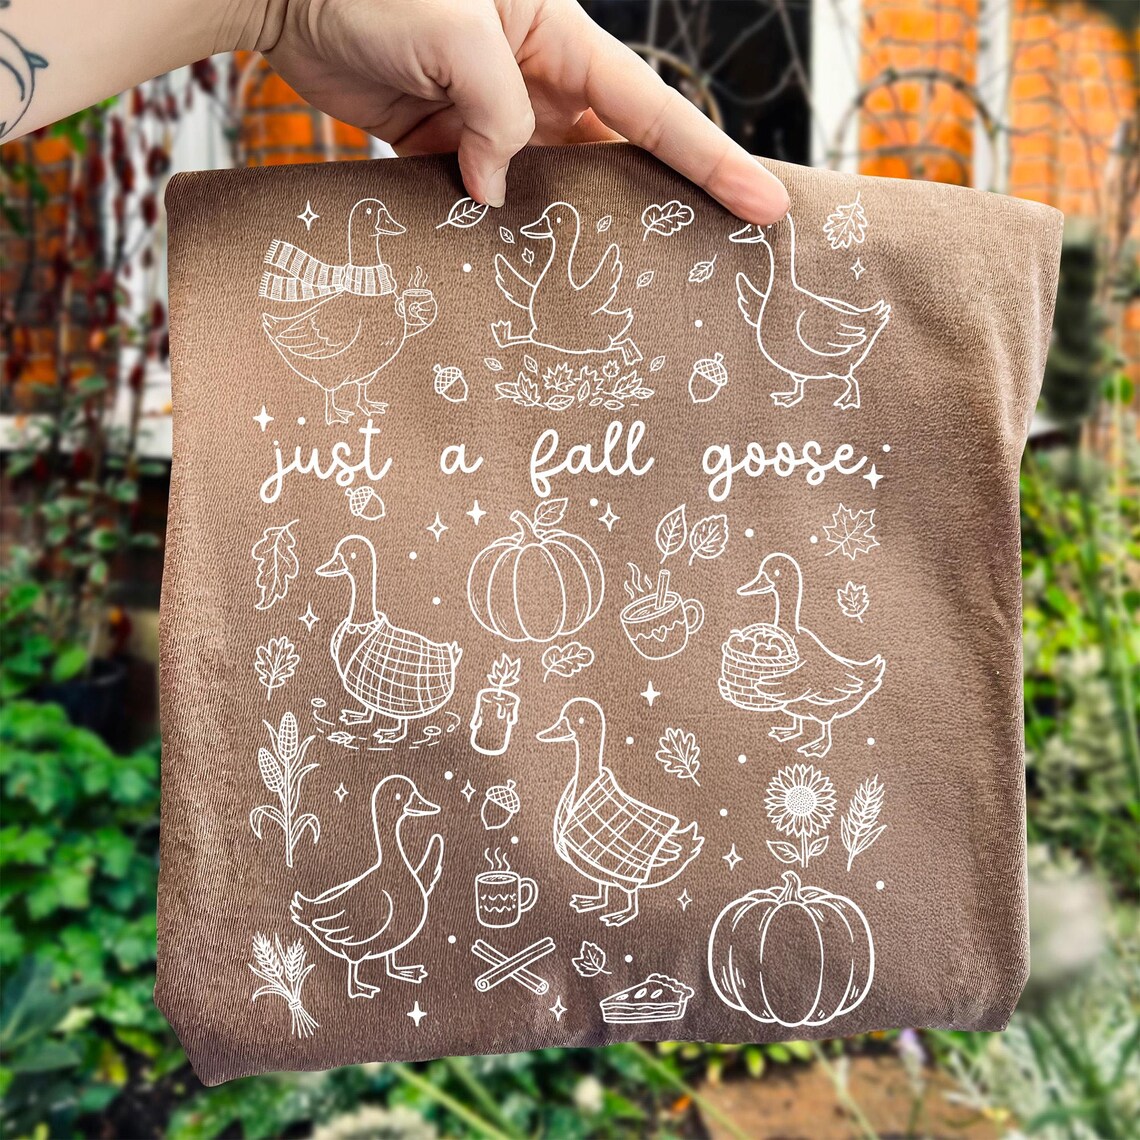 just a fall goose